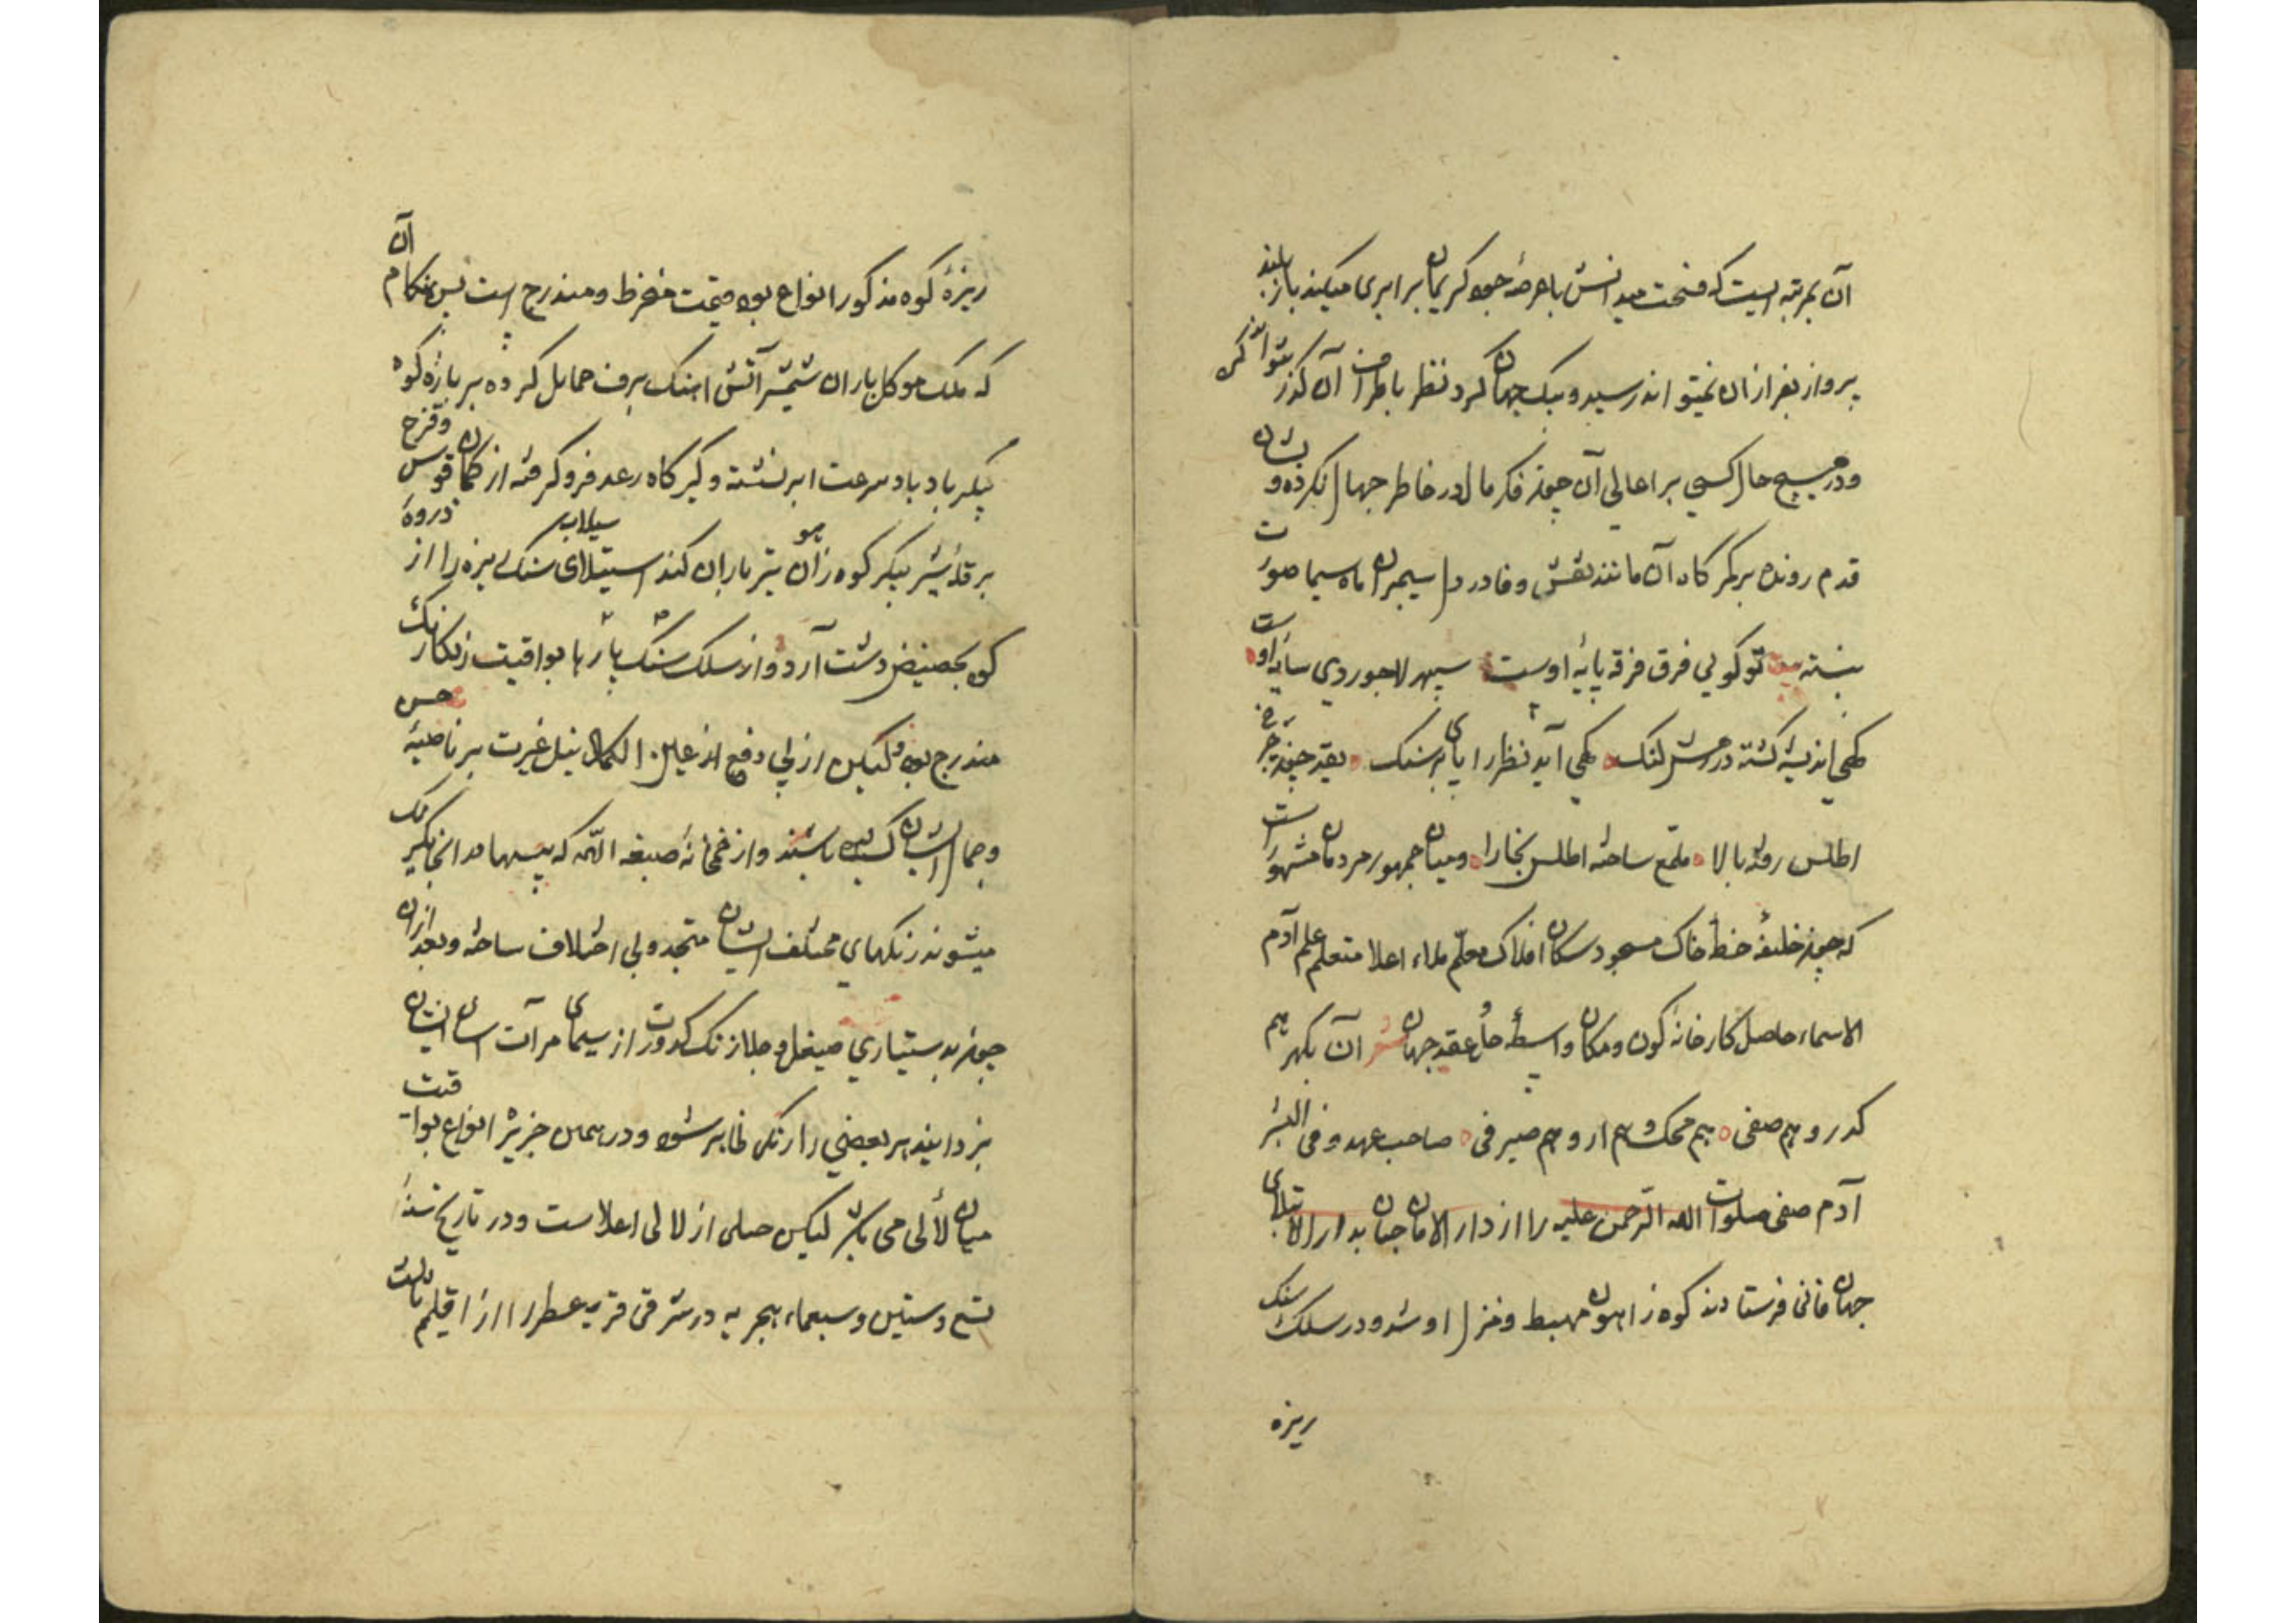 آن بمرتبه ایست که فسحت میدانش باعرصهٔ جود کریمان برابری میکند باز بلند
پرواز بفراز آن نمیتواند رسید و پیک جهان کرد نظر باطراف آن گذر نتواند کرد
و در هیچ حال کسی بر اعالی آن چون فکر مال در خاطر جهال نکرده و نشان
قدم رونده بر کمرگاه آن مانند نقش وفا در دل سیمبران ماه سیما صورت
نبسته بیت تو کویی فرق فرقد پایهٔ اوست سپهر لاجوردی سایهٔ اوست
کهی اندیشه کشته در رهش لنک کهی آید نظر را پای بر سنک بقد چون چرخ
اطلس رفته بالا ملمع ساخته اطلس بخارا و میان جمهور مردمان مشهورست
که چون خلیفهٔ خطهٔ خاک مسجود سکان افلاک معلم ملاء اعلا متعلم علم آدم
الاسماء حاصل کارخانهٔ کون و مکان واسطهٔ حل و عقد جهان شعر آن بکهر هم
کدر و هم صفی هم محک و هم زر و هم صیرفی صاحب عهد وفی البشر
آدم صفی صلوات الله الرحمن علیه را از دار الامان جنان بدار الابتلای
جهان فانی فرستادند کوه زاهون مهبط و منزل او شد و در سلک سنک
ریزه
ریزهٔ کوه مذکور انواع یواقیت منخرط و مندرج است پس بهنکام آن
که ملک موکل باران شمشیر آتش اهنک برف حمایل کرده بر بارهٔ کوه
پیکر باد باد سرعت ابر نشسته و کمرکاه رعد فرو کرفته از کمان قوس و قزح
بر قلهٔ شیر پیکر کوه زاهون تیر باران کند استیلای سیلاب سنک ریزه را از ذروهٔ
کوه بحضیض دشت آرد و از سلک سنک پارها یواقیت زنکارنک
مندرج بود ولیکن از پی دفع از عین الکمال نیل غیرت بر ناصیهٔ حسن
و جمال ایشان کشیده باشند و از خمخانهٔ صبغة الله که بیسیهامد انجا یکرنک
میشوند رنکهای مختلف ایشان متحد و بی اختلاف ساخته و بعد ازان
چون بدستیاری صیقل و جلا زنک کدورت از سیمای مرآت اسای ایشان
بزدایند هر بعضی را رنکی ظاهر شود و در همین جزیره انواع یواقیت
میان لألی می باشد لیکن حملی از لالی اعلاست و در تاریخ سنهٔ
تسع و ستین و سبعماء هجریه در شرقی قریه عطرا از اقلیم ثالث